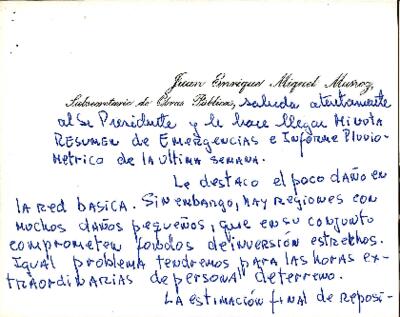 Juan Enrique Miquel Muñoz,
Subsecretario de Obras Públicas, saluda atentamente
al Sr Presidente y le hace llegar Minuta
RESUMEN de EmergenciAS e INforme Pluvio-
METRICO de LA ULTIMA SEMANA.
Le destaco el poco dAÑO en
LA RED BASICA. Sin embARgo, hAy Regiones con
muchos dAÑos pequeños, que en su conjunto
comprometen fondos de inversión estrechos.
Igual problema tendremos para LAS hoRAS ex-
TRAORDINARIAS de personal de terreno.
LA estimación final de Reposi-